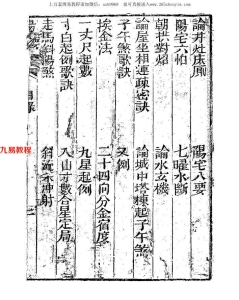 論井灶床厠
陽宅八要
陽宅六怕
七星水斷
朝拱對煞
論水玄機
論屋坐相連疎密訣
論城中塔棟起子午煞
子午煞歌訣
又例
挨金法
二十四向分金宿度
一丈尺起數
九星起例
寸白起例歌訣
入山寸數合星定局
走馬斜陽煞
斜流水神射
目錄
九易教程